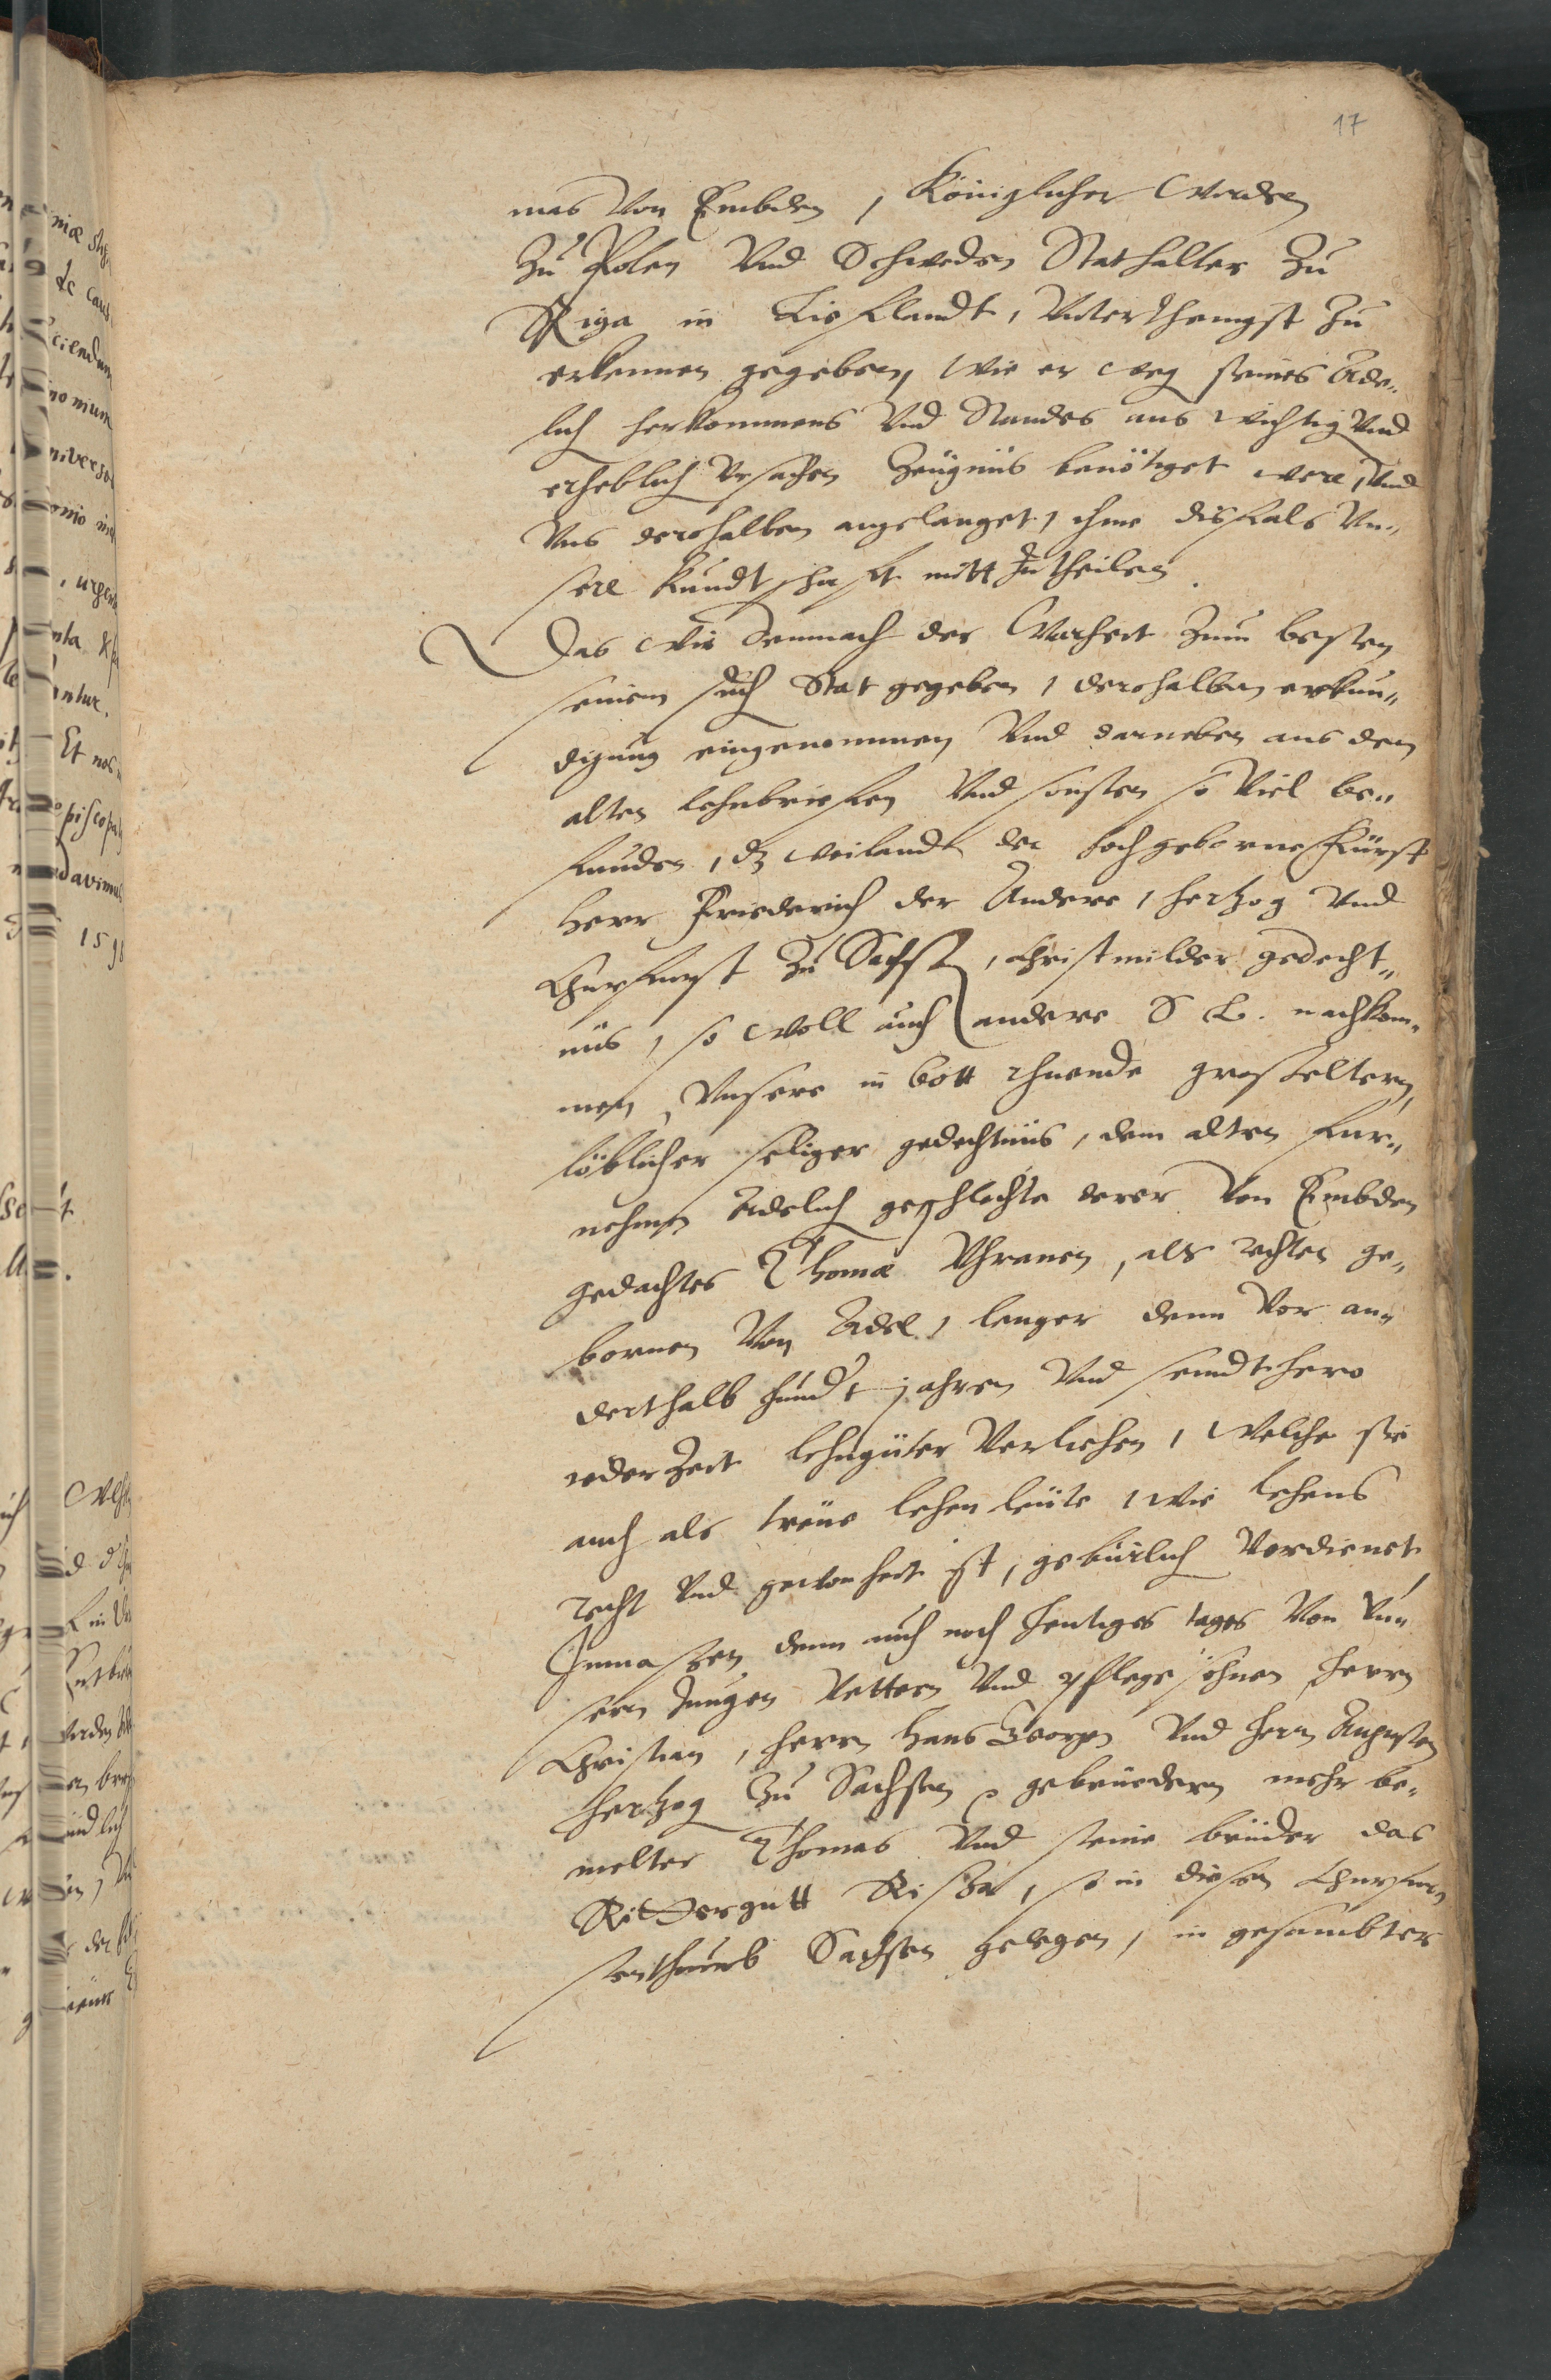 17
mas Von Embden, Königlicher Werden
Zu Polen Vnd Schweden Stathalter Zu
Riga in Lieflandt, Vnterthenigst Zu
erkennen gegeben, wie er weg seines Ade„
lich herkommens Vnd Standes aus wichtig Vnd
erheblich Vrsachen Zeügnüs benötiget were, Vnd
Vns derohalben angelanget, ihme disfals Vn„
sere kundtschafft mitt Zutheilen.
Das wir demnach der Warheit Zum besten
seinem such Stat gegeben, derohalben erkun„
digung eingenommen Vnd darneben aus den
alten lehnbriefen Vnd sonsten so Viel be„
funden, dz weilandt der hochgeborne Fürst
Herr Friederich der Andere, hertzog Vnd
Churfurst Zu Sachssen, christmilder gedecht„
nüs, so woll auch andere S L. nachkom„
men, Vnsere in Gott ruhende grosseltern,
löblicher seliger gedechtnüs, dem alten fur„
nehmen Adelich geschlechte derer Von Embden
gedachtes Thomæ Vhranen, als rechten ge„
bornen Von Adel, lenger denn Vor an„
derthalb hundt jahren Vnd seindt hero
ieder Zeit lehngüter Verliehen, welche sie
auch als treüe lehen leüte, wie lehens
recht Vnd gewonheit ist, gebürlich Verdienet,
Inmassen denn auch noch heutiges tages Von Vn„
sern Jungen Vettern Vnd Pflegesöhnen, herrn
Christian, herrn Hans Georgen Vnd herrn Augusten
hertzog Zu Sachsen gebrüedern mehr be„
melter Thomas Vnd seine brüder das
Rittergutt, so in diesem Churfur„
stenthumb Sachsen gelegen, in gesambter